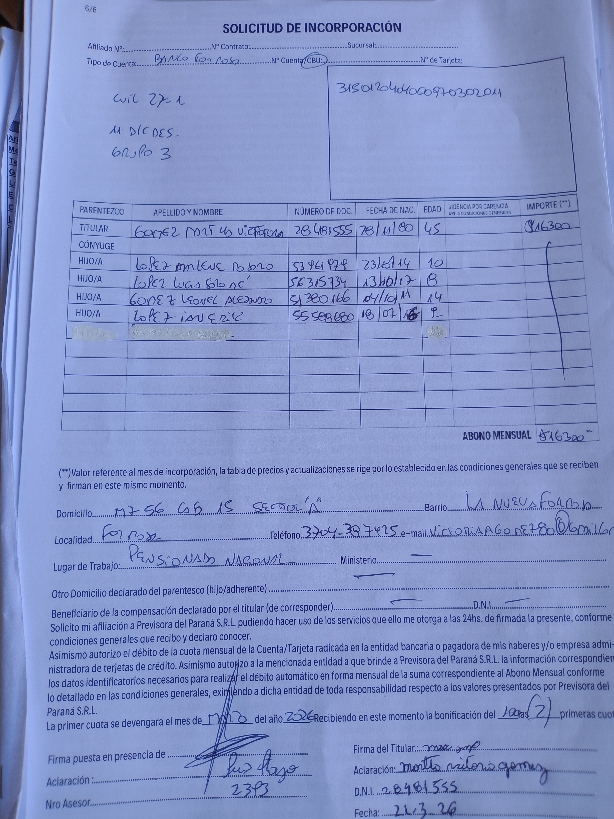 6/6
SOLICITUD DE INCORPORACIÓN
Afiliado Nº: Nº Contrato: Sucursal:
Tipo de Cuenta: Nº Cuenta/CBU: Nº de Tarjeta:
CUIL 27-1
11 DIC DES.
GRUPO 3
PARENTEZCO APELLIDO Y NOMBRE NÚMERO DE DOC. FECHA DE NAC. EDAD IMPORTE (**)
TITULAR GOMEZ 28481555 45 $16300
CÓNYUGE
HIJO/A LOPEZ 10
HIJO/A LOPEZ 56315734 13/10/17 8
HIJO/A GOMEZ LEONEL 51380166 14
HIJO/A LOPEZ 9
ABONO MENSUAL $16300
(**)Valor referente al mes de incorporación, la tabla de precios y actualizaciones se rige por lo establecido en las condiciones generales que se reciben
y firman en este mismo momento.
Domicilio MZ 56 CS 15 SECTOR "A" Barrio LA NUEVA FORMOSA
Localidad Formosa Teléfono 3704-397425 e-mail
Lugar de Trabajo: PENSIONADO NACIONAL Ministerio
Otro Domicilio declarado del parentesco (hijo/adherente)
Beneficiario de la compensación declarado por el titular (de corresponder) D.N.I.
Solicito mi afiliación a Previsora del Paraná S.R.L pudiendo hacer uso de los servicios que ello me otorga a las 24hs. de firmada la presente, conforme
condiciones generales que recibo y declaro conocer.
Asimismo autorizo el débito de la cuota mensual de la Cuenta/Tarjeta radicada en la entidad bancaria o pagadora de mis haberes y/o empresa admi-
nistradora de terjetas de crédito. Asimismo autorizo a la mencionada entidad a que brinde a Previsora del Paraná S.R.L. la información correspondien
los datos identificatorios necesarios para realizar el débito automático en forma mensual de la suma correspondiente al Abono Mensual conforme
lo detallado en las condiciones generales, eximiendo a dicha entidad de toda responsabilidad respecto a los valores presentados por Previsora del
Paraná S.R.L.
La primer cuota se devengará el mes de del año 2026 Recibiendo en este momento la bonificación del 100% (2) primeras cuot
Firma puesta en presencia de Firma del Titular:
Aclaración : Aclaración: victoria gomez
Nro Asesor 2393 D.N.I. 28481555
Fecha: 21.3.26